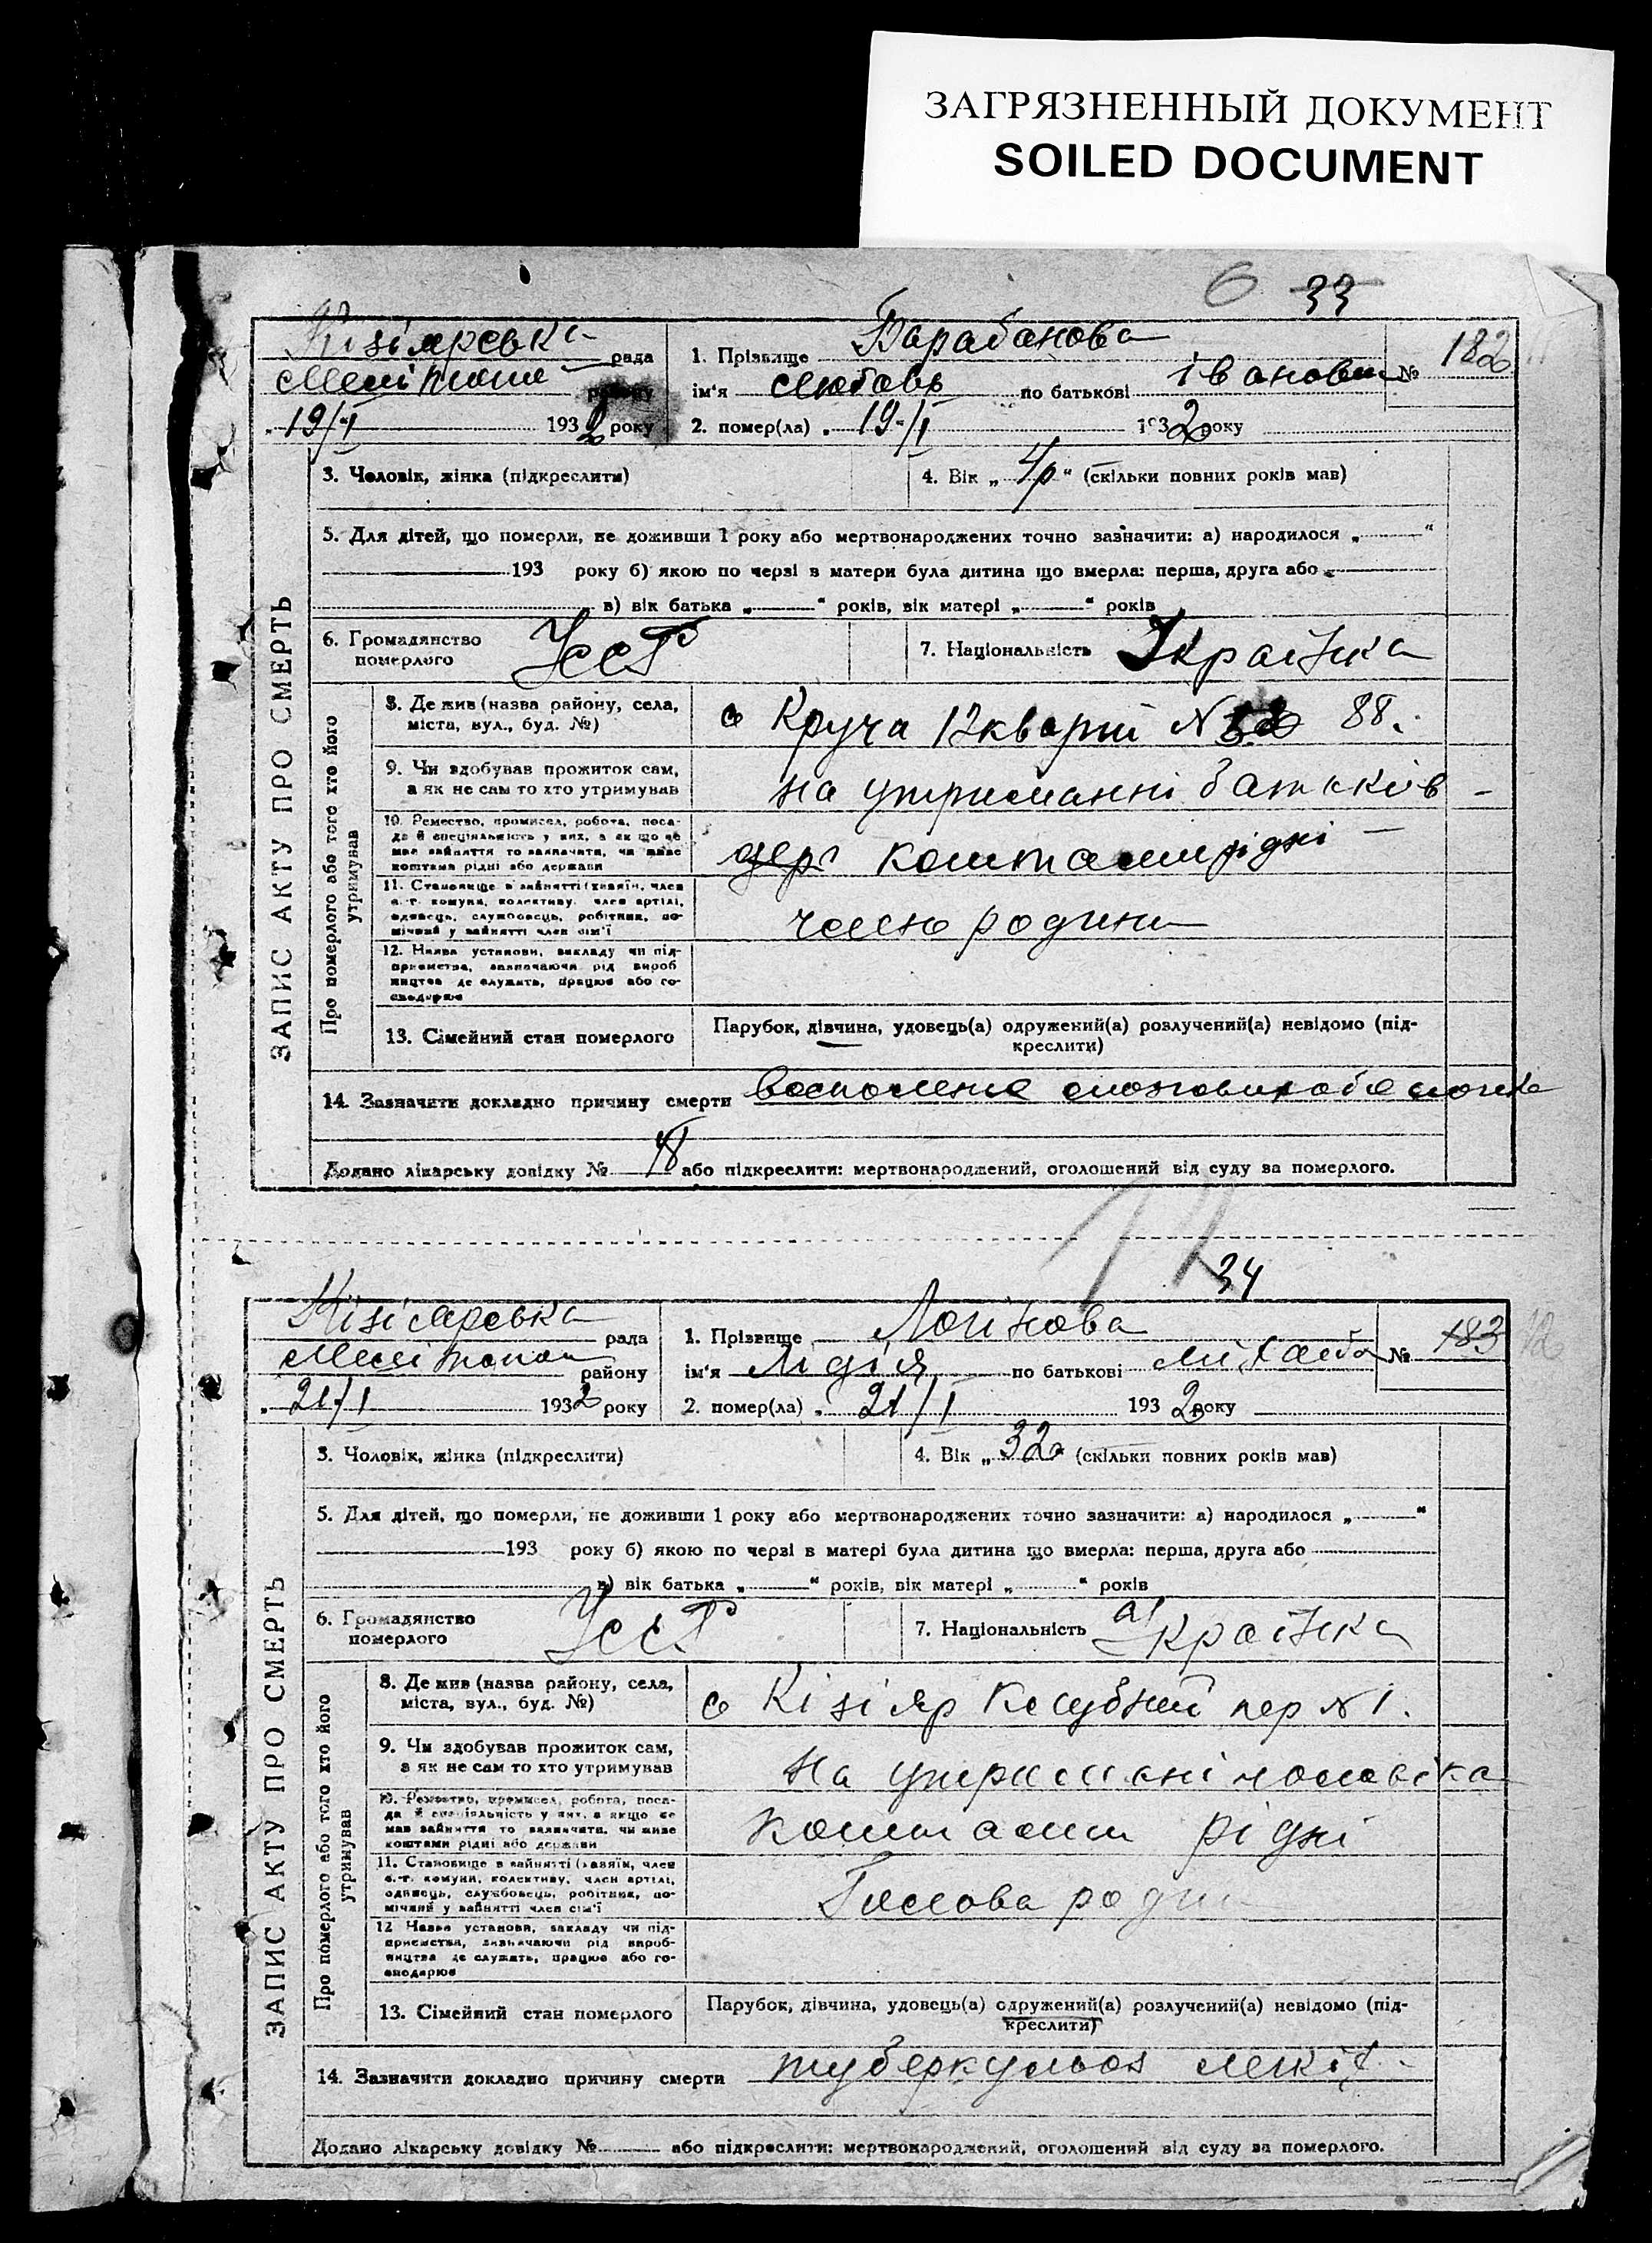 ЗАГРЯЗНЕННЫЙ ДОКУМЕНТ
SOILED DOCUMENT
6 33
Кізіярська рада
1. Прізвище Барабанова
№ 182
Меліт району
ім'я Любовь по батькові Іванови
19/I 1932 року
2. помер(ла) 19/I 1932 року
3. Чоловік, жінка (підкреслити)
4. Вік „ 4р “ (скільки повних років мав)
5. Для дітей, що померли, не доживши 1 року або мертвонароджених точно зазначити: а) народилося „ “
193 року б) якою по черзі в матери була дитина що вмерла: перша, друга або
в) вік батька „ “ років, вік матері „ “ років
ЗАПИС АКТУ ПРО СМЕРТЬ
6. Громадянство померлого УССР
7. Національність Українка
Про померлого або того хто його утримував
8. Де жив (назва району, села, міста, вул., буд. №)
с Круча 12 квартй N 88.
9. Чи здобував прожиток сам, а як не сам то хто утримував
на утриманні батьків
10. Ремество, промисел, робота, поса-
да й спеціяльність у них, а як що не
мав зайняття то зазначити, чи живе
коштами рідні або держави
коштами рідні
11. Становище в зайнятті (хазяїн, член
с.-г. комуни, колективу, член артілі,
одинець, службовець, робітник, по-
мічний у зайнятті член сім'ї
член родини
12. Назва установи, закладу чи під-
приємства, зазначаючи рід вироб
ництва де служить, працює або го-
сподарює
13. Сімейний стан померлого
Парубок, дівчина, удовець(а) одружений(а) розлучений(а) невідомо (під-
креслити)
14. Зазначити докладно причину смерти восполение мозговых
Додано лікарську довідку № 18 або підкреслити: мертвонароджений, оголошений від суду за померлого.
34
Кізіярська рада
1. Прізвище Логінова
№ 183 12
Мелітопол району
ім'я Лідія по батькові Міхаєлов
21/I 1932 року
2. помер(ла) 21/I 1932 року
3. Чоловік, жінка (підкреслити)
4. Вік „ 32 “ (скільки повних років мав)
5. Для дітей, що померли, не доживши 1 року або мертвонароджених точно зазначити: а) народилося „ “
193 року б) якою по черзі в матері була дитина що вмерла: перша, друга або
в) вік батька „ “ років, вік матері „ “ років
ЗАПИС АКТУ ПРО СМЕРТЬ
6. Громадянство померлого УССР
7. Національність Українка
Про померлого або того хто його утримував
8. Де жив (назва району, села, міста, вул., буд. №)
с Кізіяр Клубний пер N 1.
9. Чи здобував прожиток сам, а як не сам то хто утримував
на утримані чоловіка
10. Ремество, промисел, робота, поса-
да й спеціяльність у них, а якщо не
мав зайняття то зазначити, чи живе
коштами рідні або держави
коштами рідні
11. Становище в зайнятті (хазяїн, член
с.-г. комуни, колективу, член артілі,
одинець, службовець, робітник, по-
мічний у зайнятті член сім'ї
Голова роди
12. Назва установи, закладу чи під-
приємства, зазначаючи рід вироб-
ництва де служить, працює або го-
сподарює
13. Сімейний стан померлого
Парубок, дівчина, удовець(а) одружений(а) розлучений(а) невідомо (під-
креслити)
14. Зазначити докладно причину смерти туберкульоз легкіх
Додано лікарську довідку № або підкреслити: мертвонароджений, оголошений від суду за померлого.